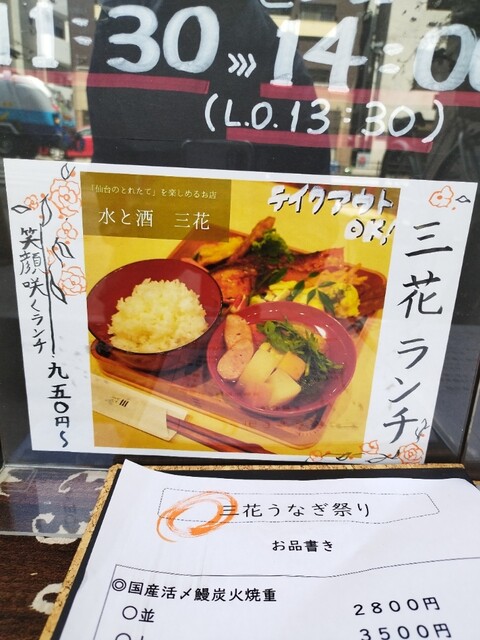 11:30 >>> 14:00
(L.O.13:30)
「仙台のとれたて」を楽しめるお店
水と酒 三花
テイクアウト
OK!
三花ランチ
笑顔咲くランチ 九五〇円〜
三花うなぎ祭り
お品書き
◎国産活〆鰻炭火焼重
〇並 2800円
3500円